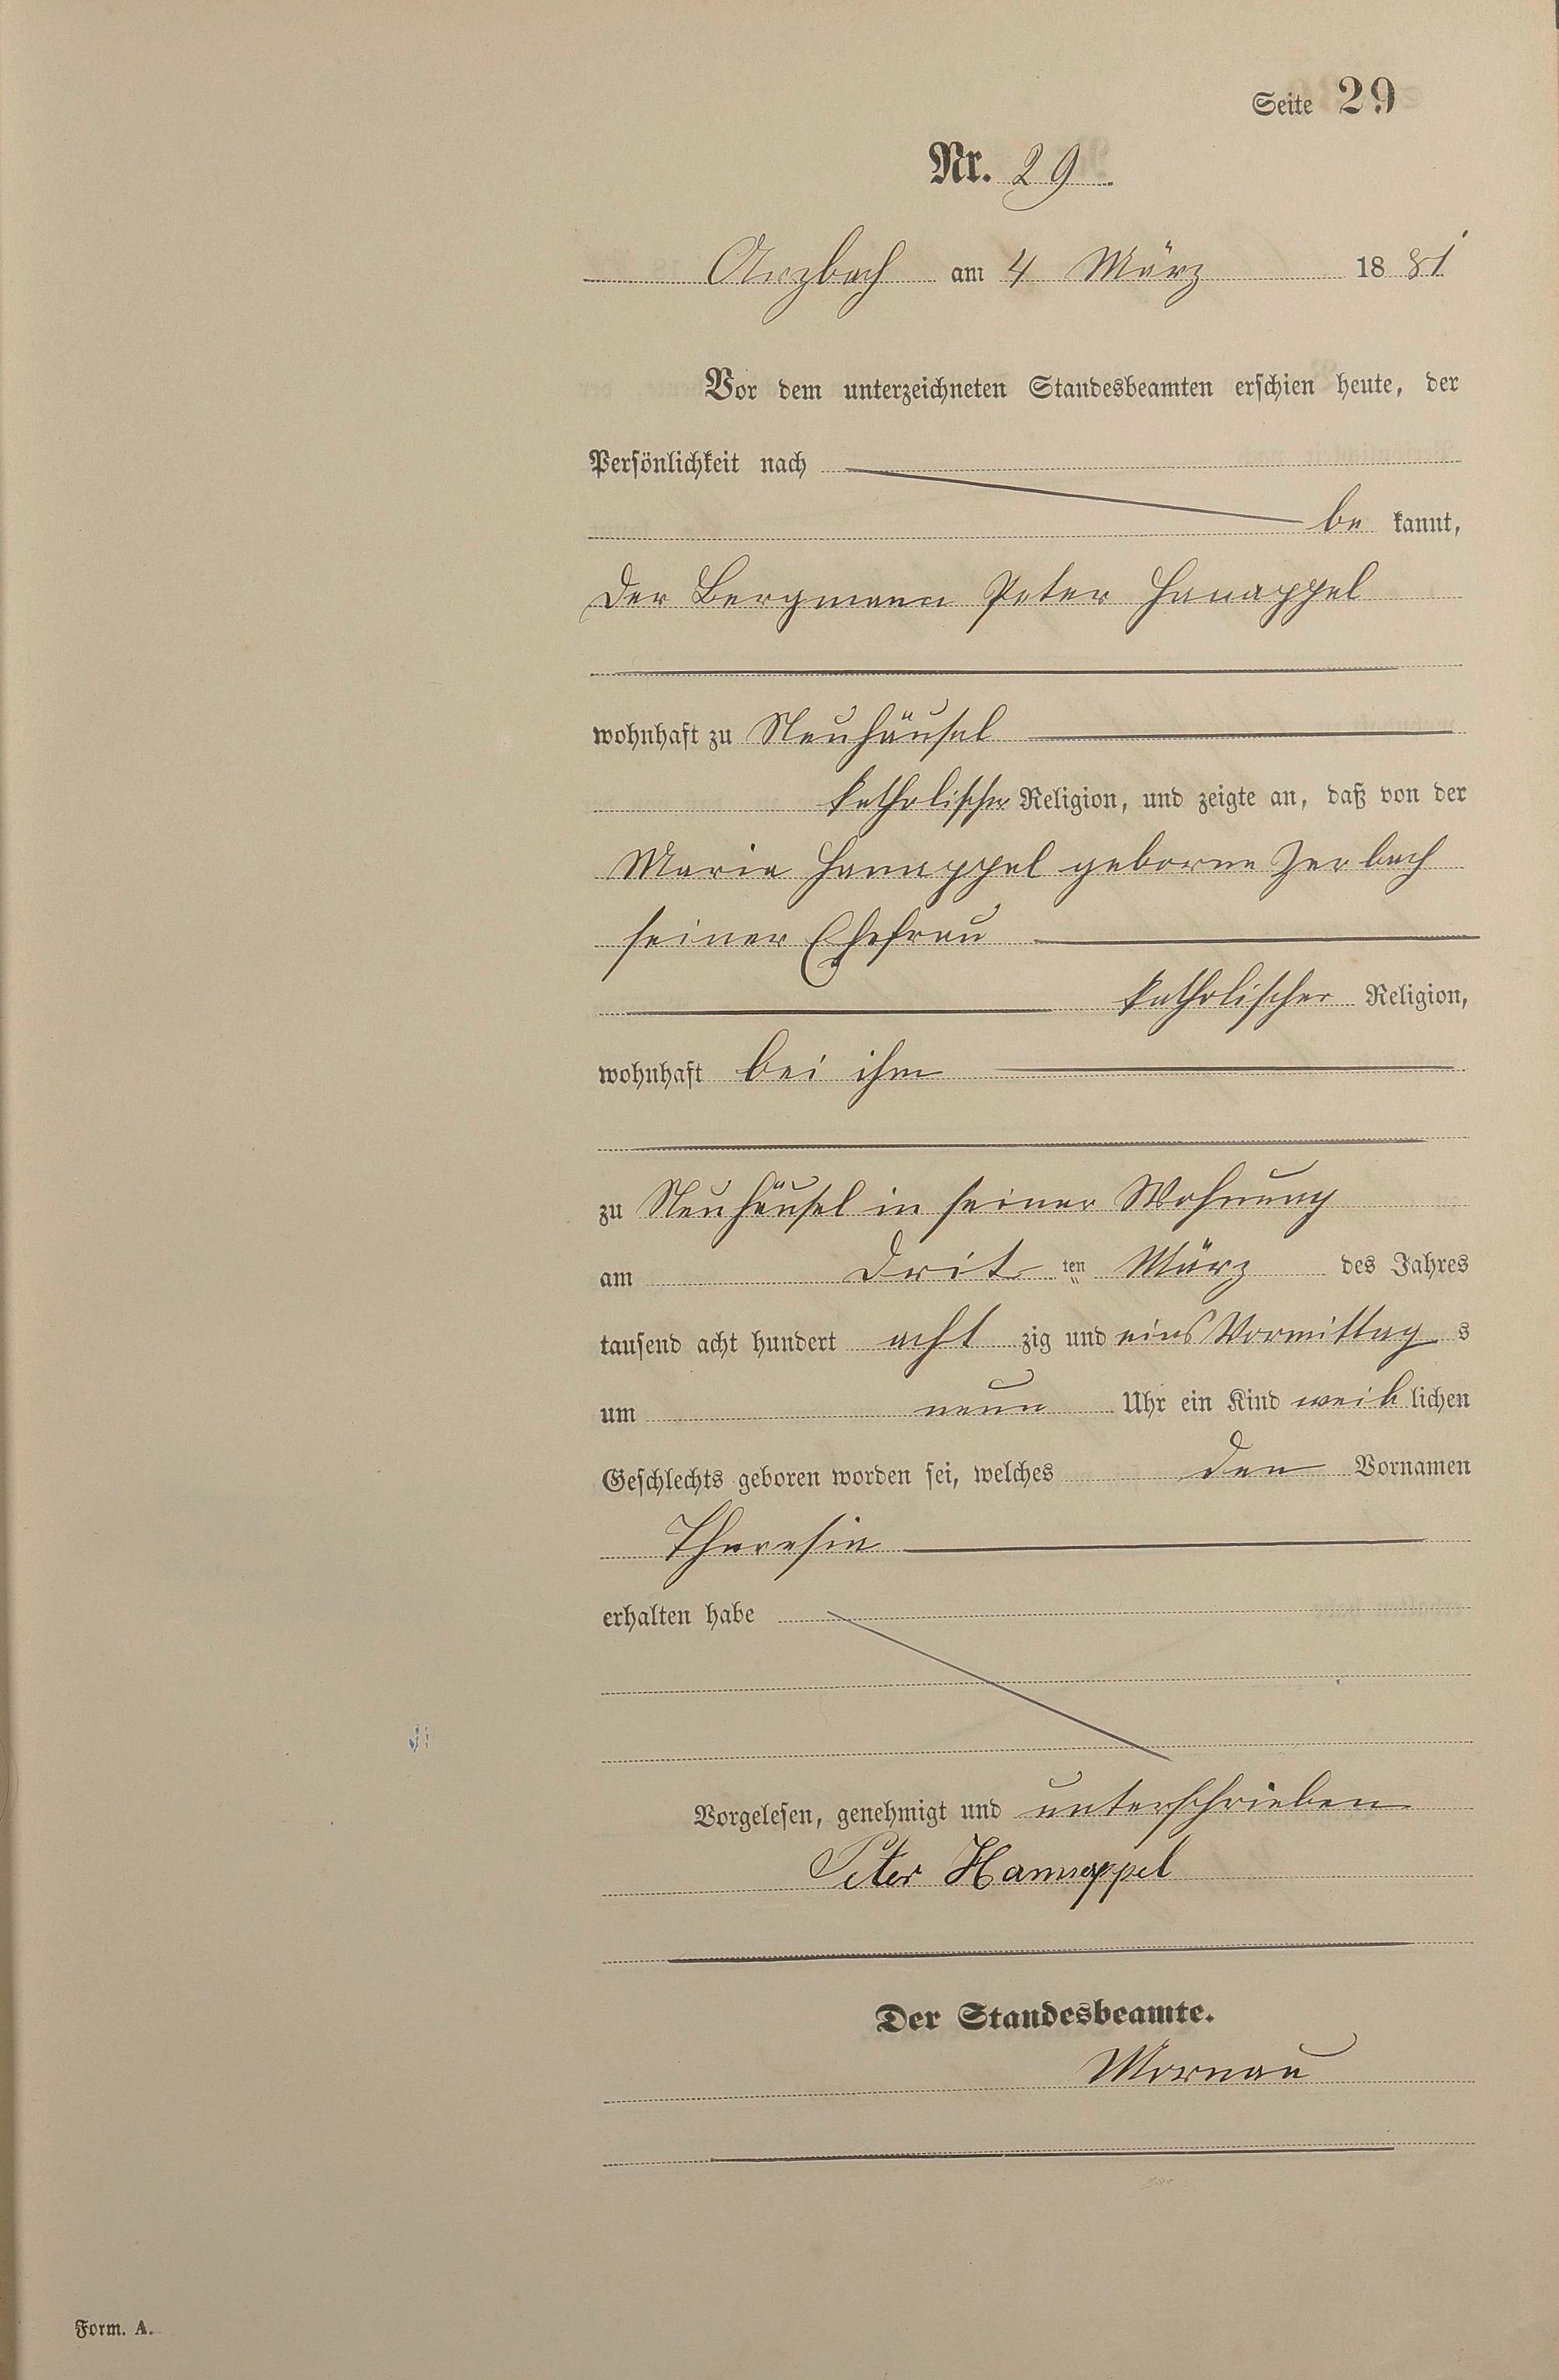 Seite 29
Nr. 29
Arzbach am 4 März 1881
Vor dem unterzeichneten Standesbeamten erschien heute, der
Persönlichkeit nach
be kannt,
der Bergmann Peter Hanappel
wohnhaft zu Neuhäusel
katholischer Religion, und zeigte an, daß von der
Maria Hanappel geborne Zerbach
seiner Ehefrau
katholischer Religion,
wohnhaft bei ihm
zu Neuhäusel in seiner Wohnung
am Drit ten März des Jahres
tausend acht hundert acht zig und eins Vormittag s
um neun Uhr ein Kind weib lichen
Geschlechts geboren worden sei, welches den Vornamen
Theresia
erhalten habe
Vorgelesen, genehmigt und unterschrieben
Peter Hannappel
Der Standesbeamte.
Mornau
Form. A.